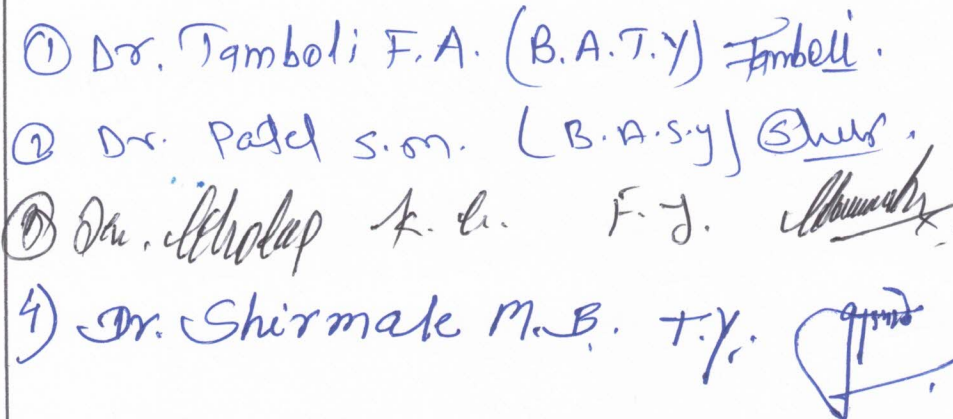 ① Dr. Tamboli F.A. (B.A.T.Y) Tamboli.
② Dr. Patel S.M. (B.A.S.Y)
③ Dr. Gholap K. F.Y.
4) Dr. Shirmale M.B. T.Y.